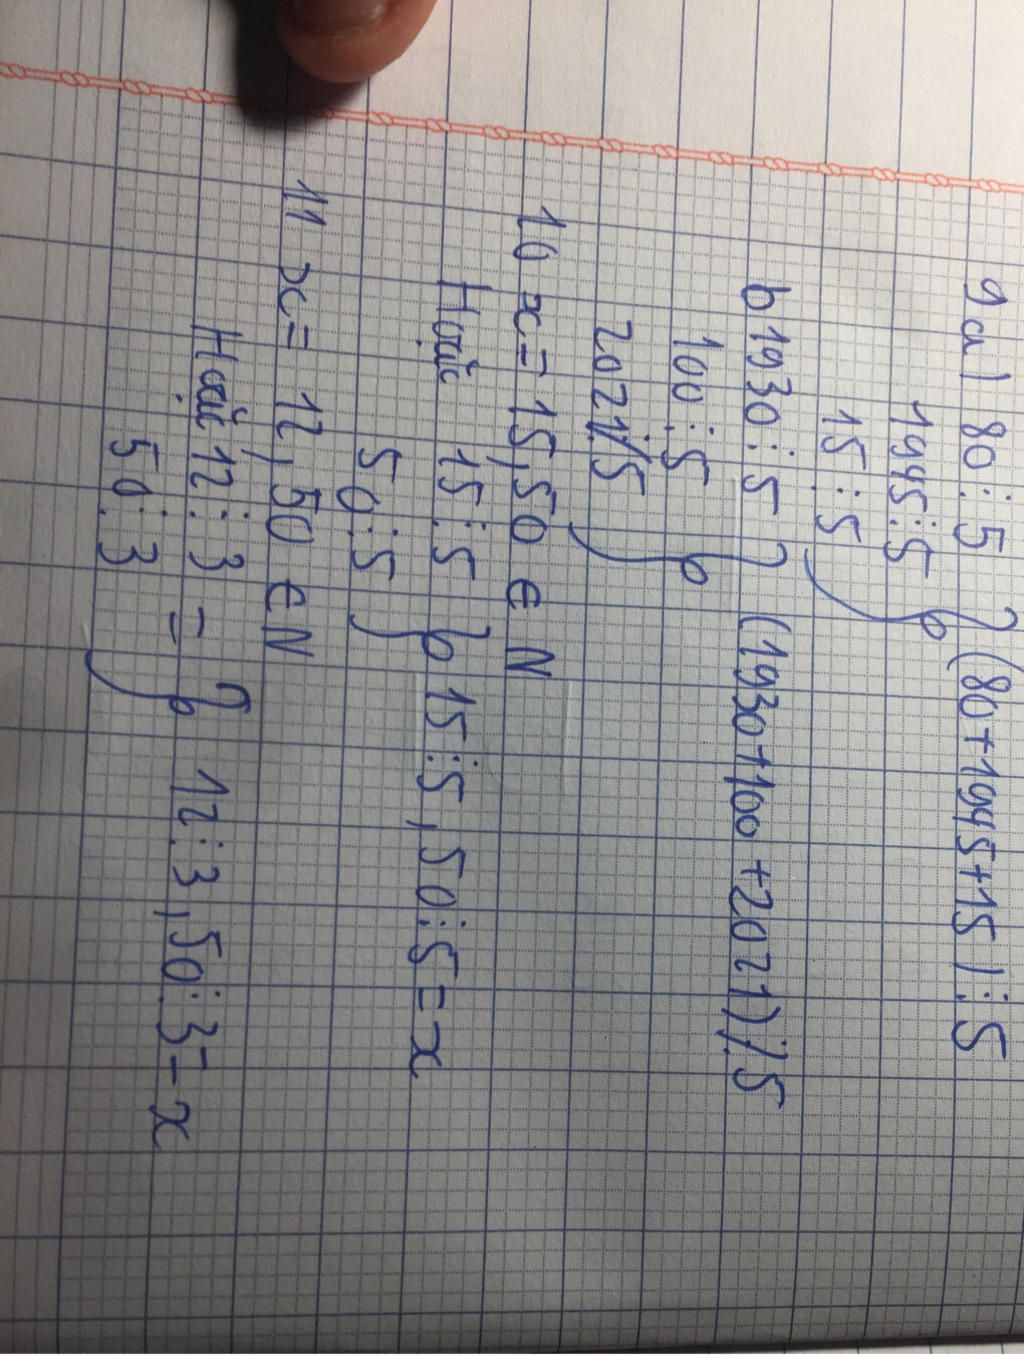 9 a) 80 ⋮ 5 } (80+1945+15) ⋮ 5
1945 ⋮ 5
15 ⋮ 5
b 1930 ⋮ 5 } (1930+100+2021) ⋮̸ 5
100 ⋮ 5
2021 ⋮̸ 5
10 x = 15, 50 ∈ N
Hoặc 15 ⋮ 5 } 15 ⋮ 5, 50 ⋮ 5 = x
50 ⋮ 5
11 x = 12, 50 ∈ N
Hoặc 12 ⋮ 3 = } 12 ⋮ 3, 50 ⋮ 3 = x
50 ⋮ 3